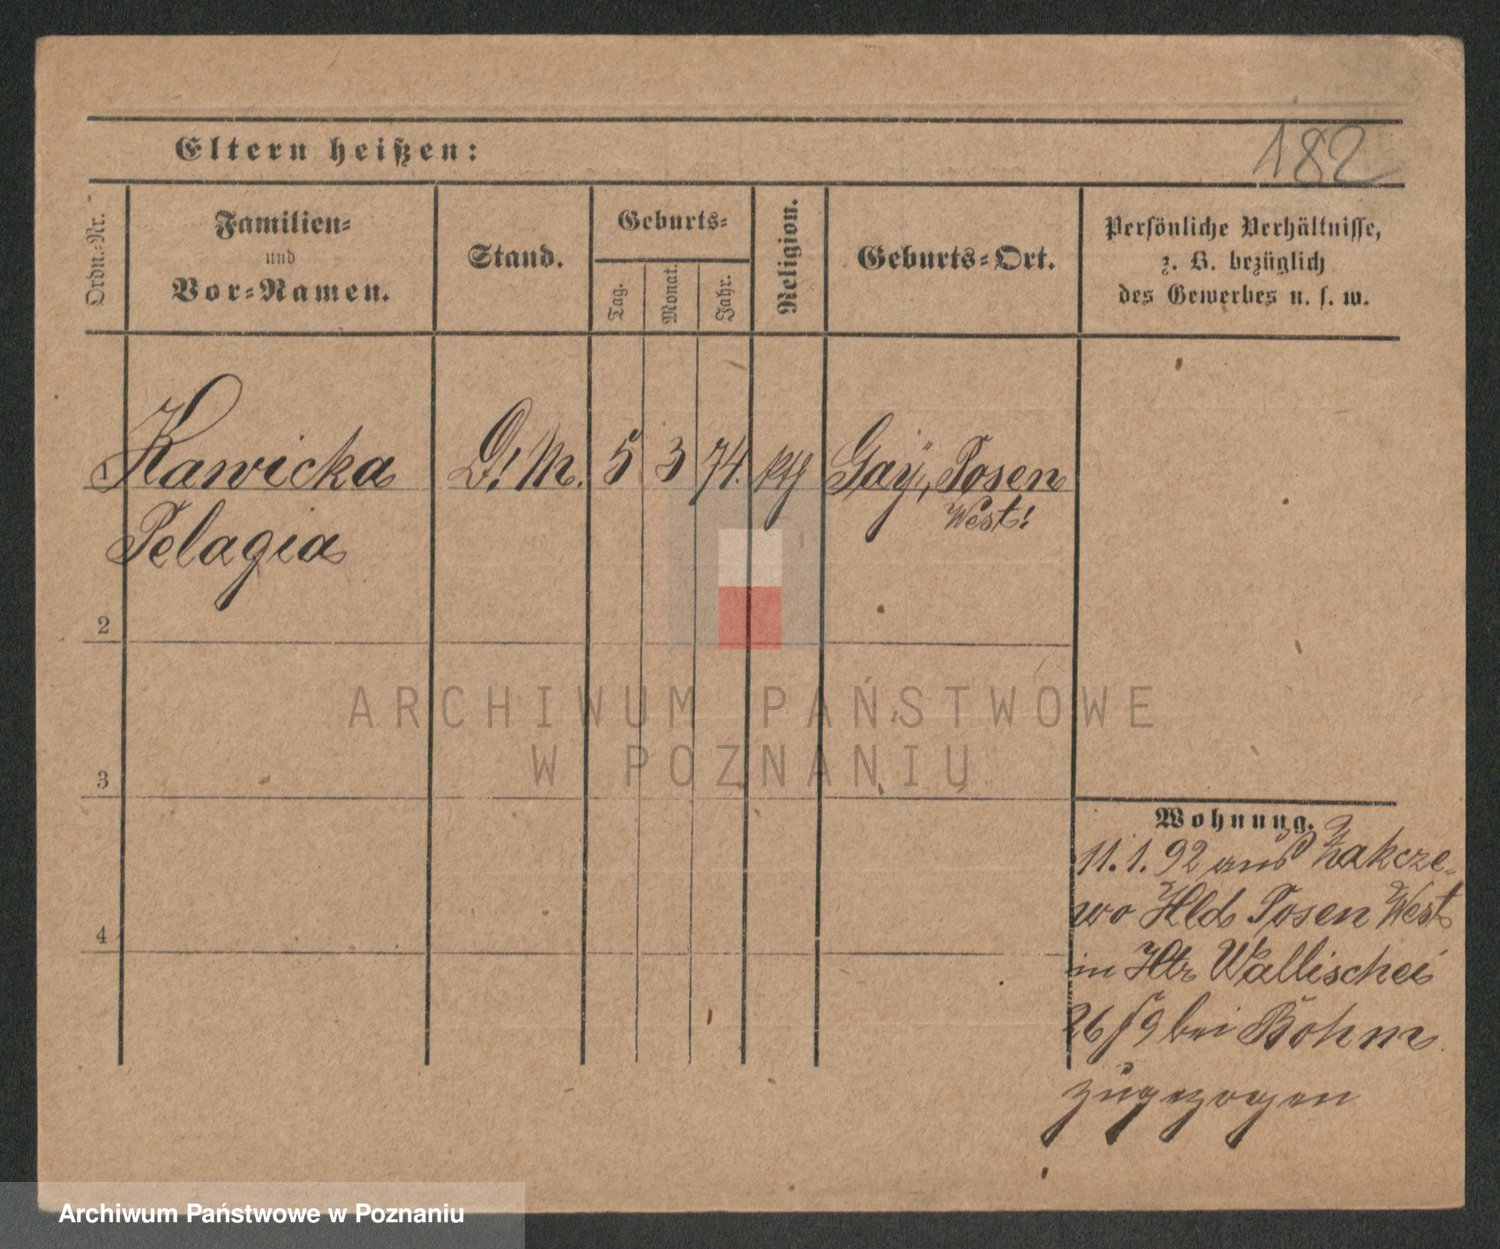 182
Eltern heißen:
Ordn.-Nr.
Familien-
und
Vor-Namen.
Stand.
Geburts-
Tag.
Monat.
Jahr.
Religion.
Geburts-Ort.
Persönliche Verhältnisse,
z. B. bezüglich
des Gewerbes u. s. w.
1 Kawicka D. M. 5 3 74. kth Gay, Posen
West!
Pelagia
2
3
4
Wohnung.
11.1.92 aus Zakrze-
wo Hld Posen West
in Htr Wallischei
26/9 bei Böhm
zugezogen
ARCHIWUM PAŃSTWOWE
W POZNANIU
Archiwum Państwowe w Poznaniu